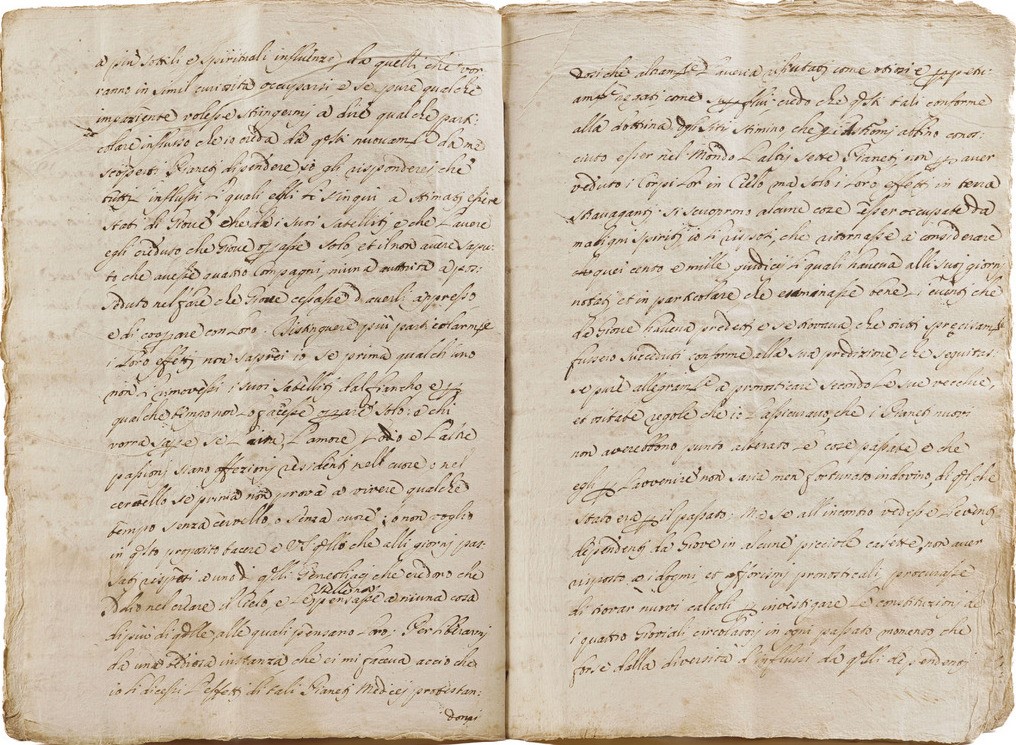 a più sottili e spirituali influenze da quelli che vor
ranno in simil curiosità occuparsi e se pure qualche
impaziente volesse stringermi a dire qualche parti:
colare influsso che io creda da q.sti nuovam.te da me
scoperti Pianeti dipendere io gli risponderei che
tutti influssi li quali essi li
stati di Giove e che da i suoi Satelliti e che l'avere
egli creduto che Giove oprasse solo et il non avere sapu:
to che avesse quattro compagni, niuna autorità a pro:
duto nel fare che Giove cessasse d'averli appresso
e di cooprare con loro. Distinguere più particolarm.te
i loro effetti non saprei io se prima qualch'uno
non li rimovesse i suoi Satelliti dal fiancho e p
qualche tempo non lo facesse oprare solo: o chi
vorrà sapp.e se l'ira, l'amore l'odio e l'altre
passioni siano affezioni residenti nell'cuore o nel
cervello se prima non prova a vivere qualche
tempo senza cervello o senza cuore; o non voglio
in q.sto proposito tacere a V.S. q.llo che alli giorni pas:
sati risposi a uno di q.lli Genethiaci che credono che
Dio nel creare il Cielo e le stelle non
pensasse a niuna cosa
di più di q.lle alle quali pensano loro; Per liberarmi
da una tediosa instanza che ei mi faceva acciò che
io li dicessi l'effetti di tali Pianeti Medicei protestan:
domi
domi che altram.te l'averia rifiutati come otiosi e p
am.te negati come superflui: credo che q.sti tali conforme
alla dottrina degli stimino che abbino conos:
ciuto esser nel Mondo l'altri sette Pianeti non p aver
veduto i Corpi lor in Cielo ma solo i loro effetti in terra
stravaganti si scuoprono alcune case esser occupate da
maligni spiriti, io li risposi, che ritornasse a considerare
quei cento e mille giudicij li quali haveva alli suoi giorni
notati et in particolare che esaminasse bene i eventi che
da Giove haveva predetti e se trovava che tutti precisam.te
fussero succeduti conforme alla sua predizione che seguitas:
se pure allegram.te a pronosticare secondo le sue vecchie,
et usitate regole che io l'assicuravo, che i Pianeti nuovi
non averebbono punto alterato le cose passate e che
egli p l'avvenire non saria men fortunato indovino, di q.l che
stato era p il passato: Ma se all'incontro vedesse l'eventi
dipendenti da Giove in alcune picciole cosette, non aver
risposto a i dogmi et afforismi pronosticali procurasse
di trovar nuovi calcoli p investigare le constituzioni de
i quattro Gioviali circolatori in ogni passato momento che
forse dalla diversità d'influssi da q.lli dependenti